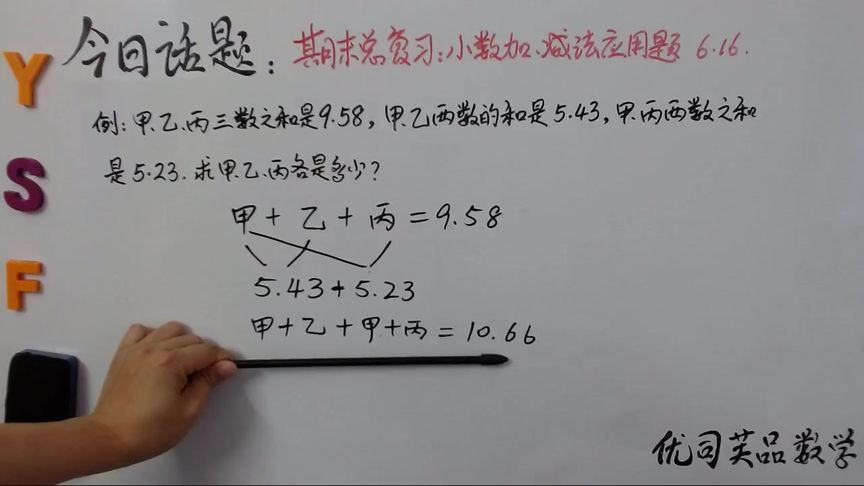 今日话题：期末总复习：小数加、减法应用题 6.16.
例：甲、乙、丙三数之和是9.58，甲、乙两数的和是5.43，甲、丙两数之和
是5.23.求甲、乙、丙各是多少？
甲+乙+丙=9.58
5.43+5.23
甲+乙+甲+丙=10.66
YSF
优司英品数学